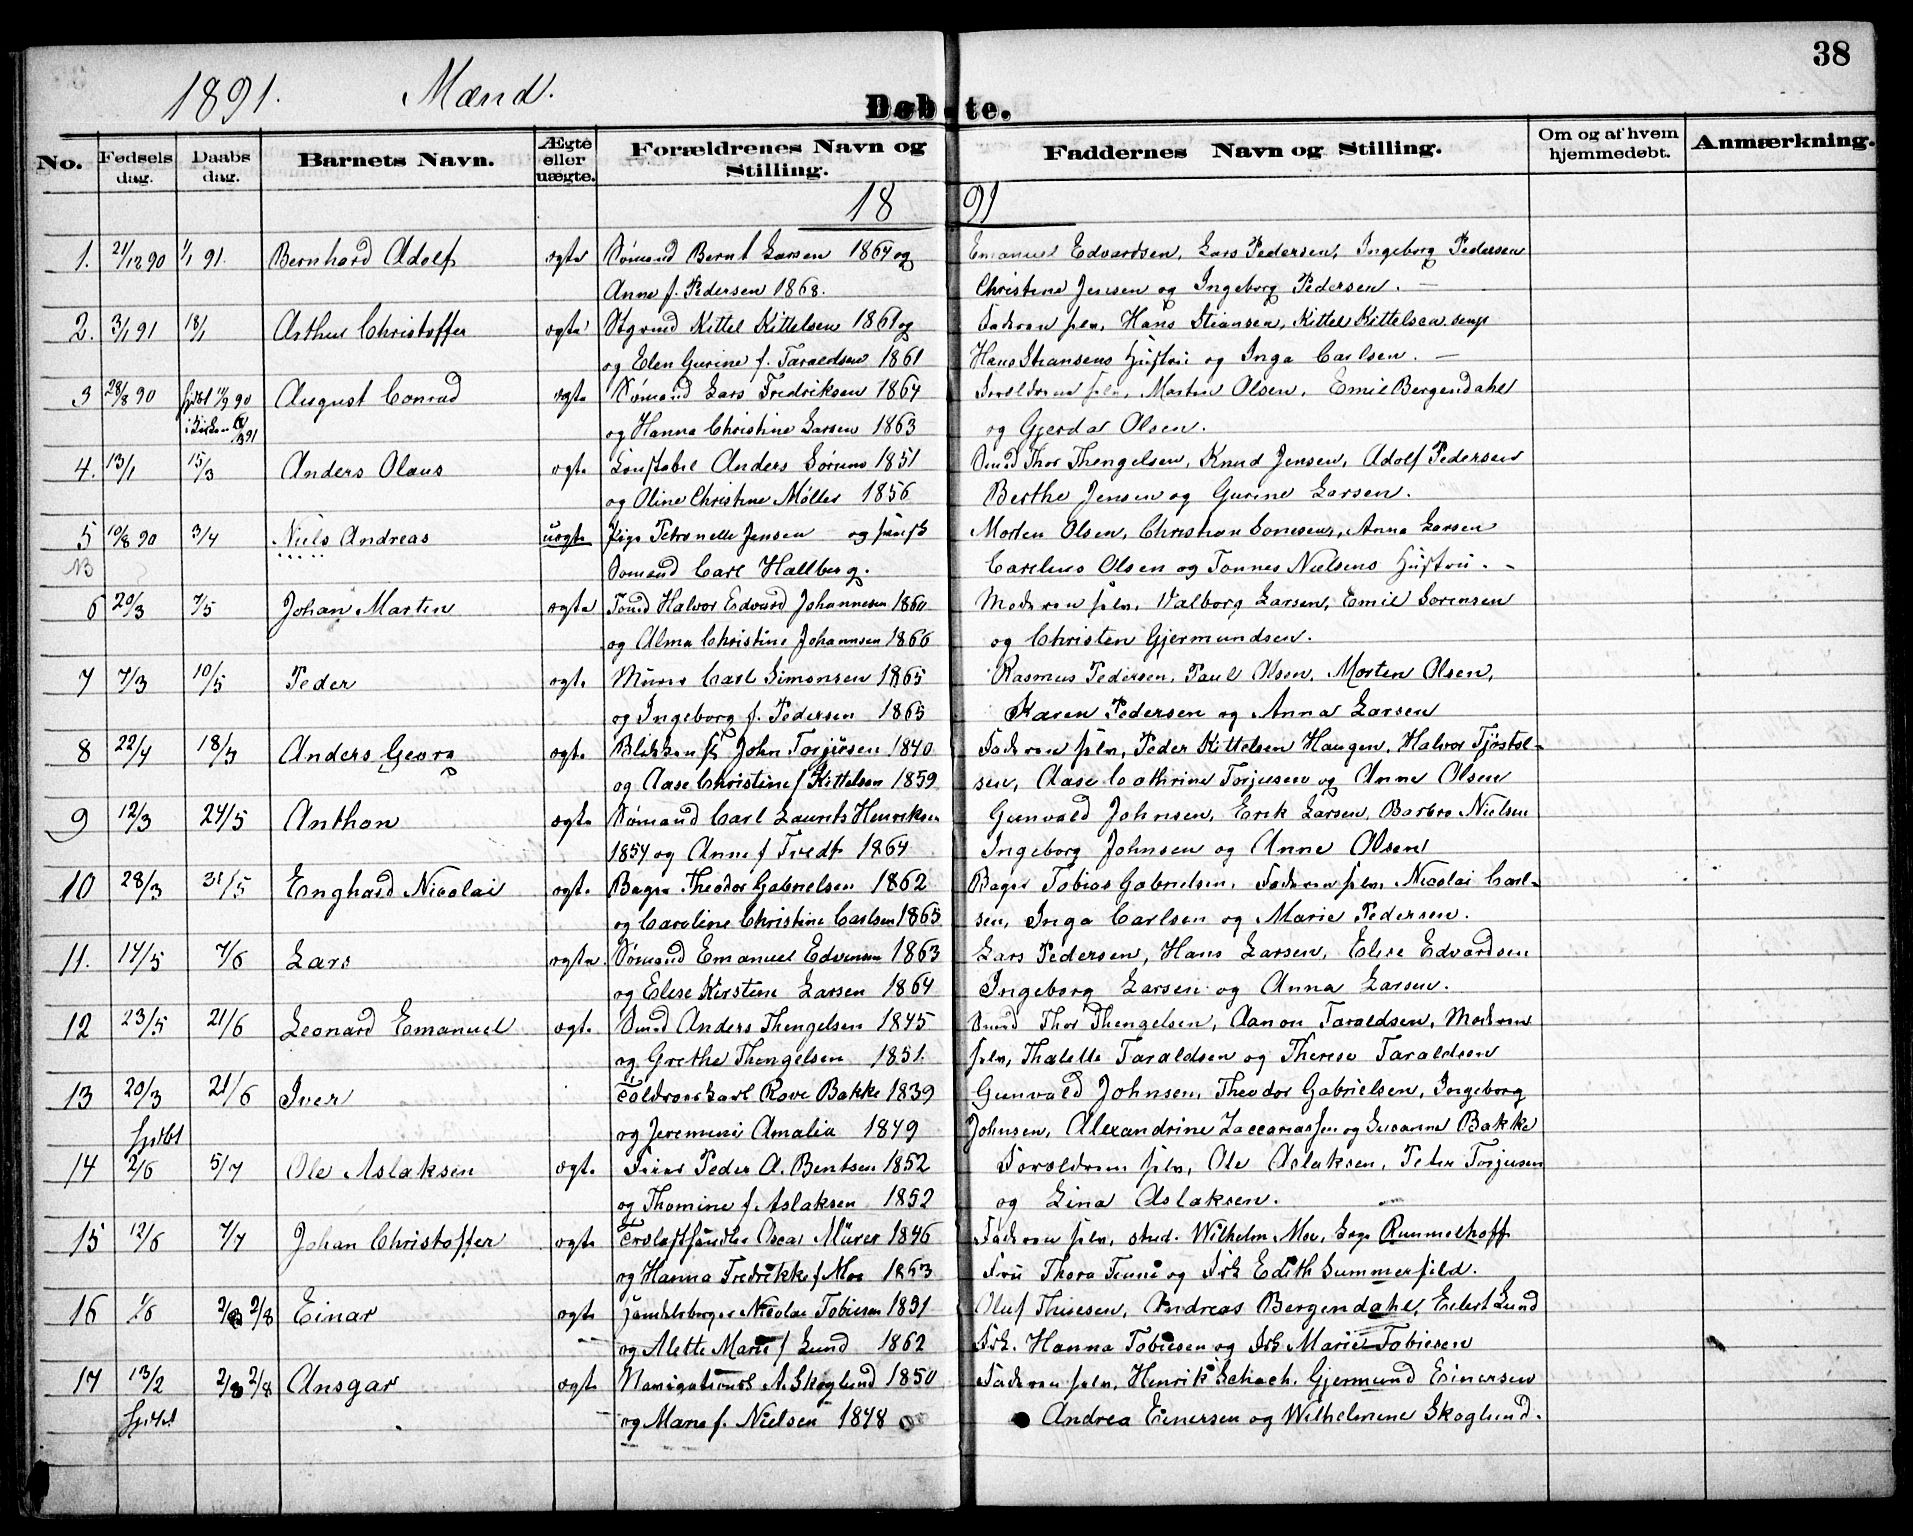 38
1891. Mænd.
Døbte.
No. Fødselsdag. Daabsdag. Barnets Navn. Ægte eller uægte. Forældrenes Navn og Stilling. Faddernes Navn og Stilling. Om og af hvem hjemmedøbt. Anmærkning.
1891
1. 21/12 90 1/1 91. Bernhard Adolf ægte Sømand Bernt Larsen 1864 og Emanuel Edvardsen, Lars Pedersen, Ingeborg Pedersen
Anne f. Pedersen 1868. Christine Jensen og Ingeborg Pedersen.
2. 3/1 91 18/1 Arthur Christoffer ægte Kittel Kittelsen 1861 og Faderen selv, Hans Stiansen, Kittel Kittelsen
og Elen Gurine f. Taraldsen 1861 Hans Stiansens Hustru og Inga Carlsen.
3 28/8 90 August Conrad ægte Sømand Lars Fredriksen 1864 Forældrene selv, Morten Olsen, Emil Bergendahl
og Hanna Christine Larsen 1863 og Gjerda Olsen.
4. 13/1 15/3 Anders Olaus ægte Konstabel Anders Sørums 1851 Smed Thor Thengelsen, Knud Jensen, Adolf Pedersen
og Oline Christine Møller 1856 Berthe Jensen og Gurine Larsen.
5 10/8 90 3/4 Niels Andreas uægte Pige Petronelle Jensen og Morten Olsen, Christian Sørensen, Anna Larsen
NB Sømand Carl Hallberg. Carelius Olsen og Tonnes Nielsens Hustru.
6 20/3 7/5 Johan Martin ægte Tømd Halvor Edvard Johannesen 1860 Moderen selv, Valborg Larsen, Emil Sørensen
og Alma Christine Johannsen 1866 og Christen Gjermundsen.
7 7/3 10/5 Peder ægte Murer Carl Simonsen 1865 Rasmus Pedersen, Paul Olsen, Morten Olsen,
og Ingeborg f. Pedersen 1865 Karen Pedersen og Anna Larsen
8 22/4 18/5 Anders Georg ægte John Torjusen 1840 Faderen selv, Peder Kittelsen Haugen, Halvor Tjøstol-
og Aase Christine f Kittelsen 1859 sen, Aase Cathrine Torjusen og Anne Olsen
9 12/3 24/5 Anthon ægte Sømand Carl Laurits Henriksen Gunvald Johnsen, Erik Larsen, Barbro Nielsen
1854 og Anne f Tvedt 1864 Ingeborg Johnsen og Anne Olsen
10 28/3 31/5 Enghard Nicolai ægte Bager Theodor Gabrielsen 1862 Bager Tobias Gabrielsen, Faderen selv, Nicolai Carl-
og Caroline Christine Carlsen 1865 sen, Inga Carlsen og Marie Pedersen.
11. 14/5 7/6 Lars ægte Sømand Emanuel Edvensen 1863 Lars Pedersen, Hans Larsen, Elise Edvardsen
og Elise Kirstine Larsen 1864 Ingeborg Larsen og Anna Larsen.
12 23/5 21/6 Leonard Emanuel ægte Smed Anders Thengelsen 1845 Smed Thor Thengelsen, Aanon Taraldsen, Moderen
og Grethe Thengelsen 1851. selv, Thalette Taraldsen og Therese Taraldsen
13 20/3 21/6 Iver Toldroerkarl Rove Bakke 1839 Gunvald Johnsen, Theodor Gabrielsen, Ingeborg
hjdbt og Jeremini Amalia 1849 Johnsen, Alexandrine Zaccariassen og Susanne Bakke
14 2/6 5/7 Ole Aslaksen ægte Peder A. Bentsen 1852 Forældrene selv, Ole Aslaksen, Peter Torjusen
og Thomine f. Aslaksen 1852 og Lina Aslaksen.
15 12/6 7/7 Johan Christoffer ægte Trælasthandler Oscar Mürer 1846 Faderen selv, stud. Wilhelm Moe, Sogn Rummelhoff
og Hanna Fredrikke f Moe 1863 Fru Thora Finne og Frk Edith Summerfild.
16 1/6 2/8 2/8 Einar ægte Handelsborger Nicolai Tobiesen 1831 Oluf Thiesen, Andreas Bergendahl, Eilert Lund
og Alette Marie f Lund 1862 Frk. Hanna Tobiesen og Frk Marie Tobiesen
17 13/2 2/8 2/8 Ansgar ægte Navigationsb A. Skoglund 1850 Faderen selv, Henrik Schach, Gjermund Einersen
hjdbt og Marie f. Nielsen 1848 Andrea Einersen og Wilhelmine Skoglund.